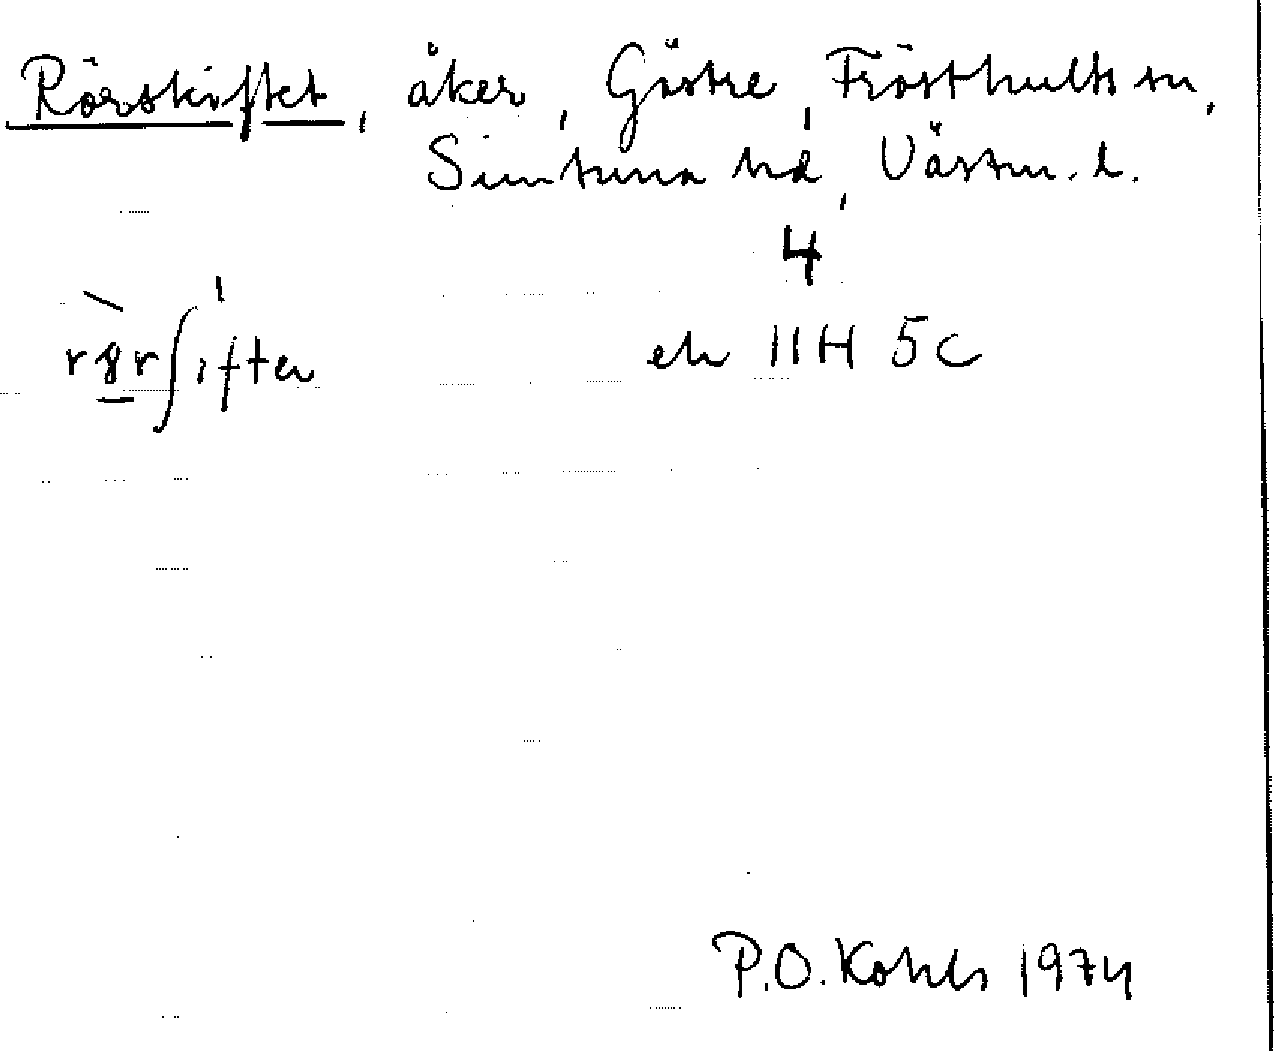 Rörskiftet, åker, Gästre, Frösthults sn,
Simtuna hd, Västm. l.
4
rɵrʃifter
ek 11H 5c
P.O. Kohls 1974